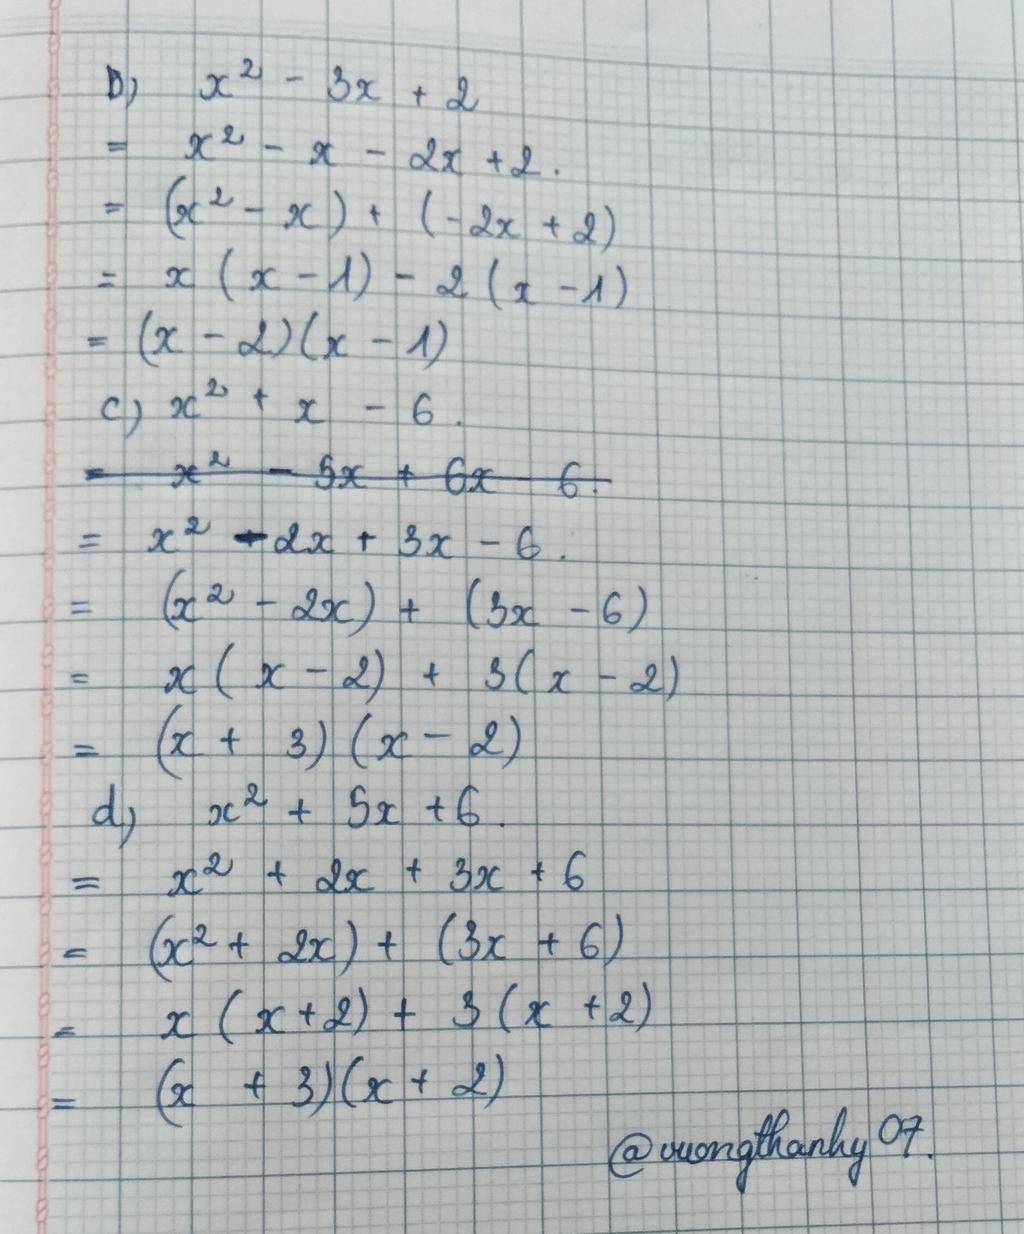 b) x² - 3x + 2
= x² - x - 2x + 2.
= (x² - x) + (-2x + 2)
= x (x - 1) - 2 (x - 1)
= (x - 2)(x - 1)
c) x² + x - 6.
= x² - 5x + 6x - 6.
= x² - 2x + 3x - 6.
= (x² - 2x) + (3x - 6)
= x (x - 2) + 3(x - 2)
= (x + 3) (x - 2)
d) x² + 5x + 6.
= x² + 2x + 3x + 6
= (x² + 2x) + (3x + 6)
= x (x + 2) + 3 (x + 2)
= (x + 3)(x + 2)
@vuongthanhy07.